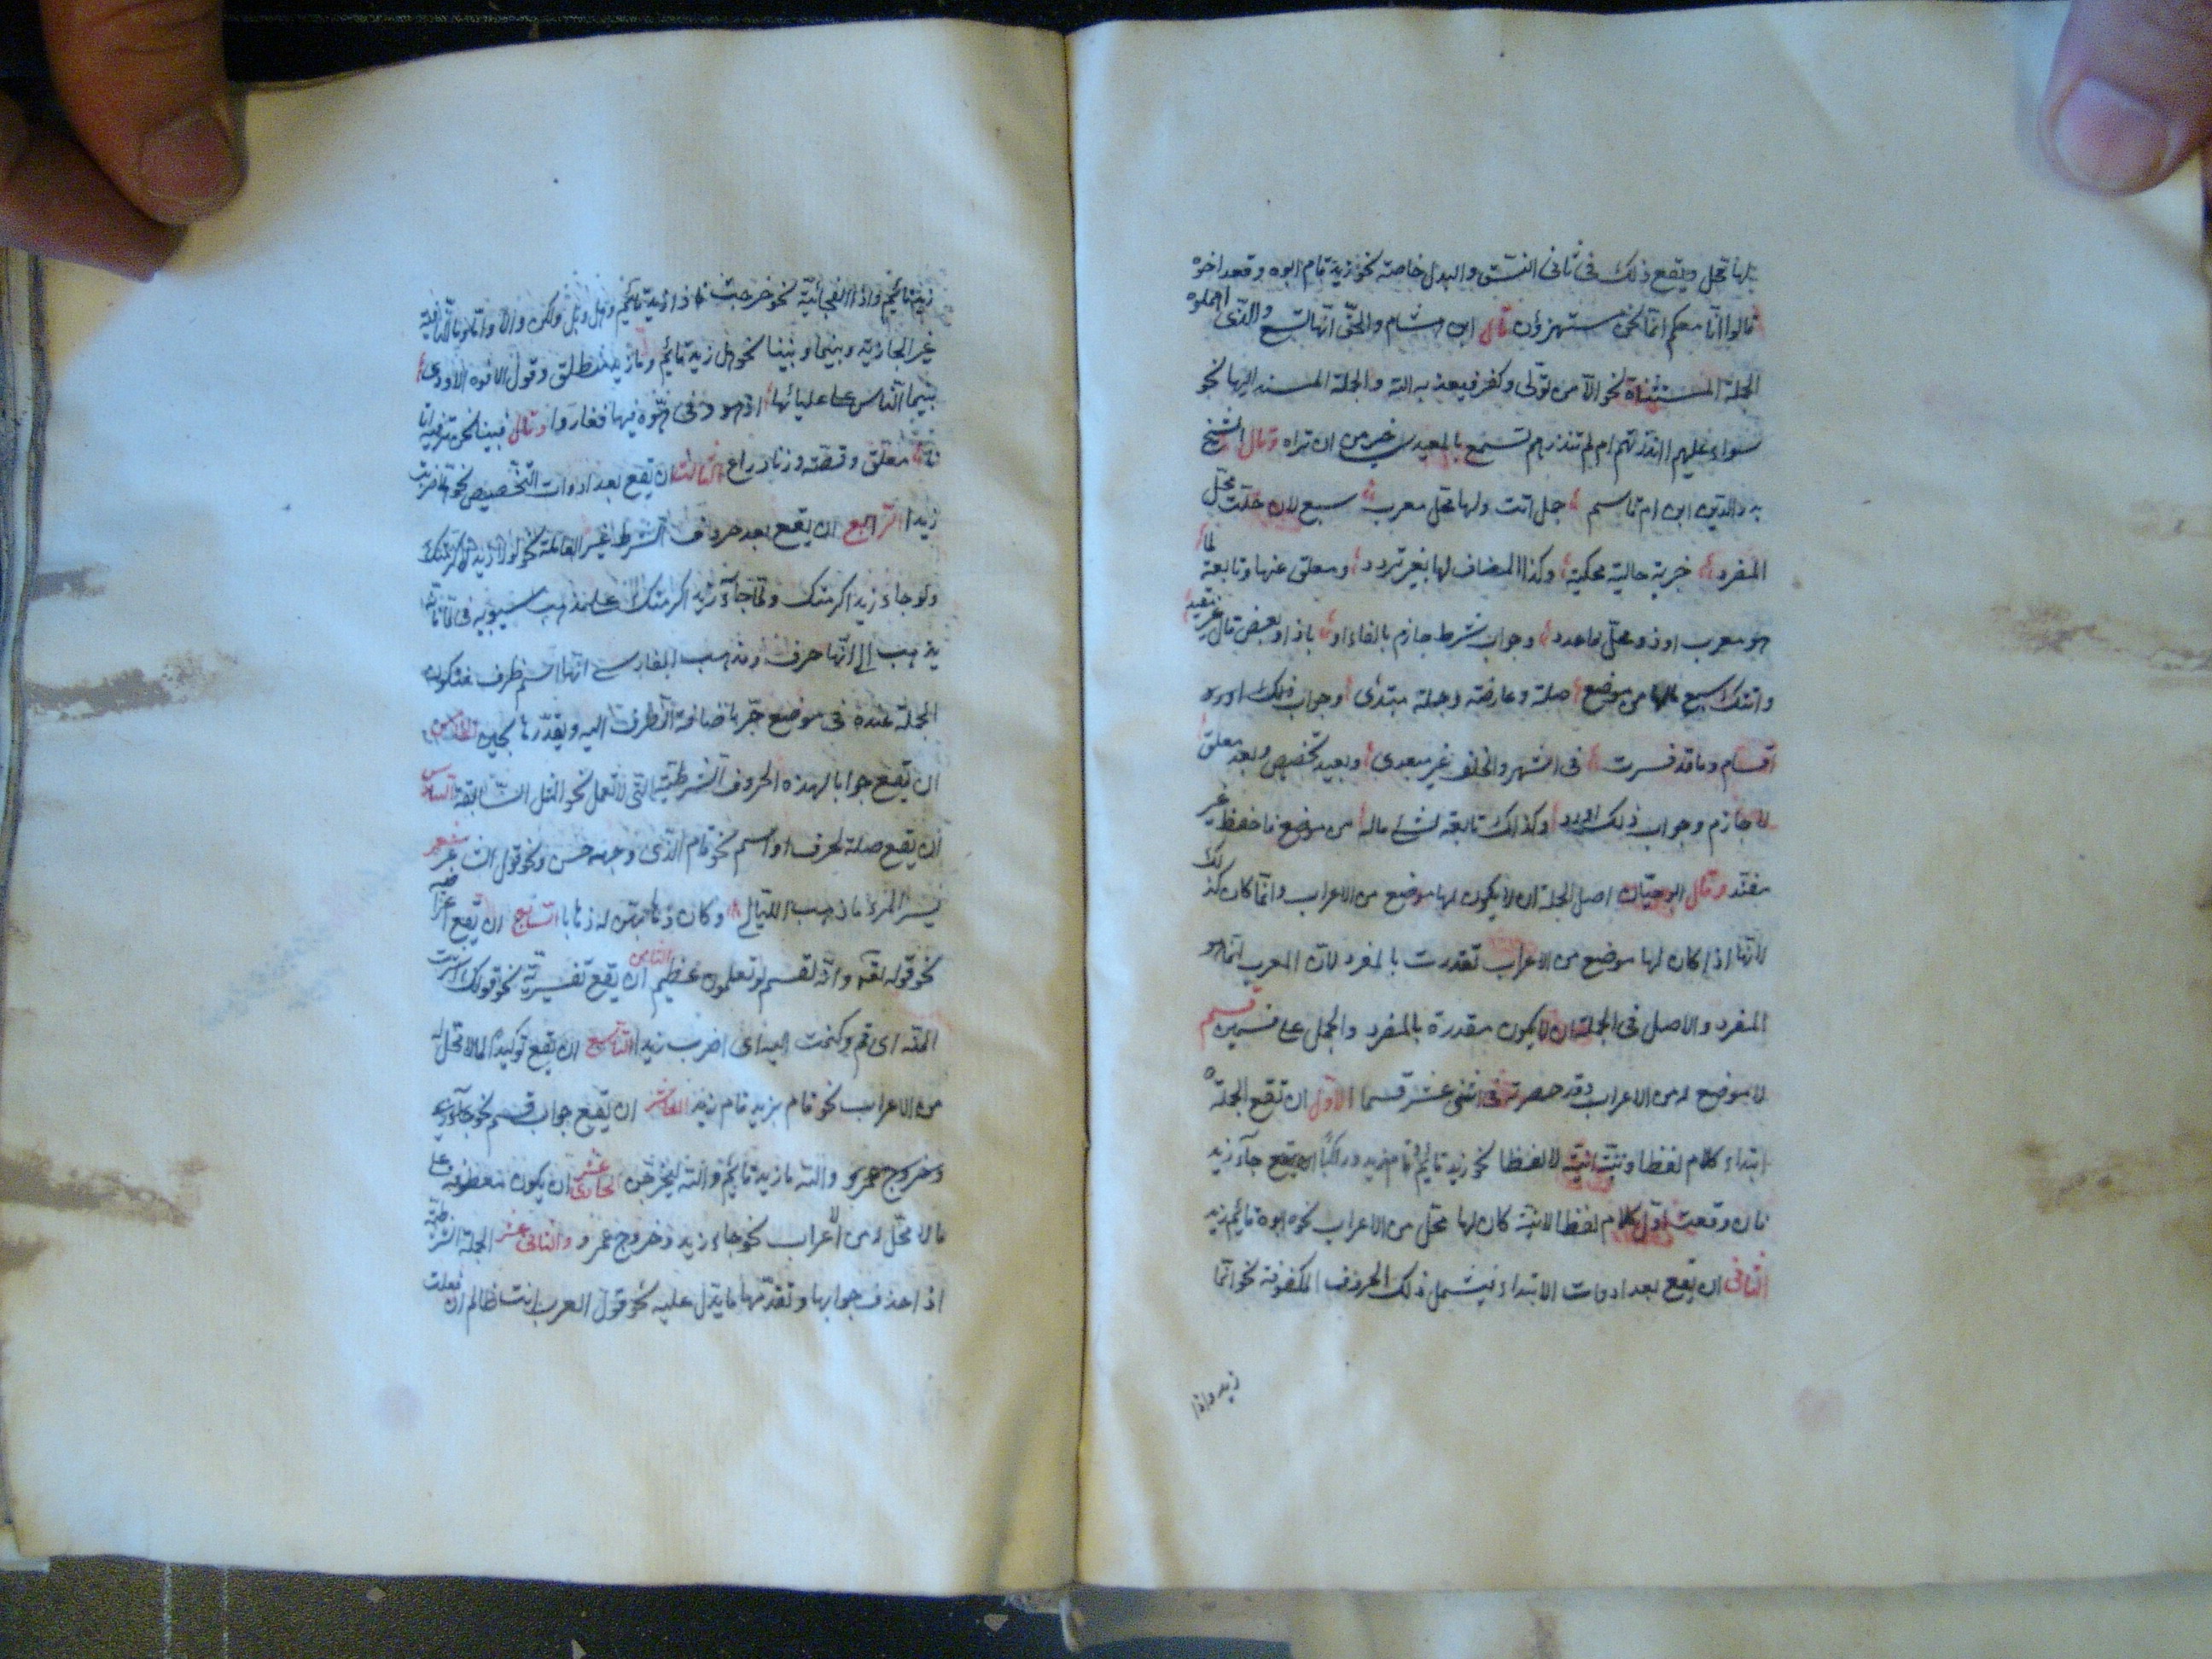 لها محل ويقع ذلك فى ثانى النسق والبدل خاصة نحو زيد قام ابوه وقعد اخوه
قالوا انّا معكم انّما نحن مستهزؤن قال ابن هشام والحقّ انّها تسع والذى اهملوه
الجملة المستثناة نحو الّا من تولّى وكفر فيعذبه الله والجملة المسند اليها نحو
سواء عليهم ءانذرتهم ام لم تنذرهم تسمع بالمعيدى خير من ان تراه وقال الشيخ
بدر الدين ابن ام قاسم جمل اتت ولها محل معرب سبع لان حلّت محلّ
المفرد خبرية حالية محكية وكذا المضاف لها بغير تردد ومعلق عنها وتابعة لما
هو معرب او ذو محلّ فاعدد وجواب شرط جازم بالفاء او باذا وبعض قال غير مقيد
واتتك سبع مالها من موضع صلة وعارضة وجملة مبتدى وجواب ذلك اورد
اقسام وما قد فسرت فى اشهر والخلف غير مبعدى وبعيد تخصيص وبعد معلق
لا جازم وجواب ذلك اورد وكذلك تابعة لشئ ماله من موضع فاحفظ غير
مفند وقال ابو حيّان اصل الجملة ان لا يكون لها موضع من الاعراب وانّما كان كذلك
لانّها اذا كان لها موضع من الاعراب تقدرت بالمفرد لانّ المعرب انّما هو
المفرد والاصل فى الجملة ان لا يكون مقدرة بالمفرد والجمل على قسمين قسم
لا موضع له من الاعراب وقد حصرته فى اثنى عشر قسما الاوّل ان تقع الجملة
ابتداء كلام لفظا ونيّة او نيّة لا لفظا نحو زيد قائم وقام زيد وراكبًا جآء زيد
فان وقعت اوّل كلام لفظا لا نيّة كان لها محلّ من الاعراب نحو ابوه قائم زيد
الثانى ان يقع بعد ادوات الابتداء فيشمل ذلك الحروف المكفوفة نحو انّما
زيد واذا
زيد قائم واذا الفجائيّة نحو خرجت فاذا زيد قائم وهل وبل ولكن والا واما وما النافية
غير الحجازية وبينما وبينا نحو هل زيد قائم وما زيد منطلق وقول الافوه الاودى
بينما الناس على عليائها اذ هووا فى هوّة فيها فغاروا وقال فبينا نحن نرقبه اتانا
معلّق وفضة وزناد راع الثالث ان يقع بعد ادوات التخصيص نحو هلّا ضربت
زيدا الرّابع ان يقع بعد حروف الشرط غير العاملة نحو لولا زيد لاكرمتك
ولو جاء زيد اكرمتك ولمّا جآء زيد اكرمتك على مذهب سيبويه فى لمّا فانّه
يذهب الى انّها حرف ومذهب الفارسى انّها اسم ظرف فتكون
الجملة عنده فى موضع جرّ باضافة الظرف اليه ويقدّرها بحين الخامس
ان يقع جوابا لهذه الحروف الشرطيّة التى لا تعمل نحو المثل السّابقة السّادس
ان يقع صلة لحرف او اسم نحو قام الذى وجهه حسن ونحو قول الشاعر شعر
يسر المرء ما ذهب الليالى وكان ذهابهن له ذهابا السّابع ان يقع اعتراضيه
نحو قوله تعالى وانّه لقسم لو تعلمون عظيم الثّامن ان يقع تفسيريّة نحو قولك اشرت
اليه اى قم وكتبت اليه اى اضرب زيدا التّاسع ان يقع توكيدًا لما لا محل له
من الاعراب نحو قام زيد قام زيد العاشر ان يقع جواب قسم نحو
والله ما زيد قائم والله ليخرجن الحادى عشر ان يكون معطوفة على
ما لا محلّ له من الاعراب نحو جاء زيد وخروج عمرو والثانى عشر الجملة الشرطية
اذا حذف جوابها وتقدّمها ما يدلّ عليه نحو قول العرب انت ظالم ان فعلت